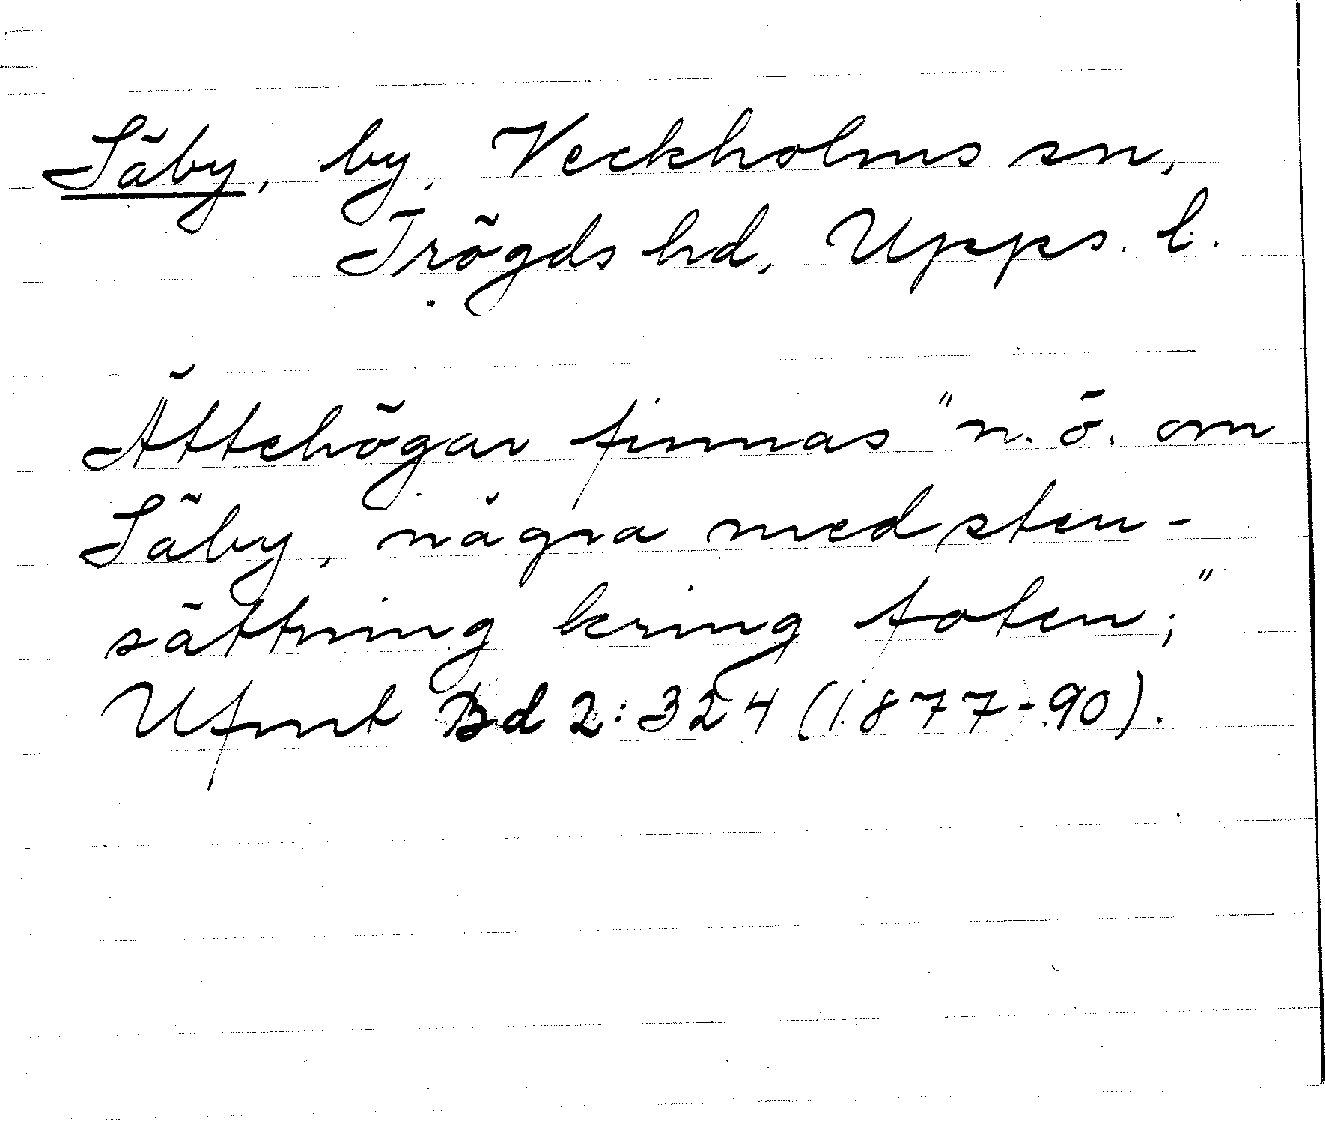 Säby, by, Veckholms sn,
Trögds hd, Upps. l.
Ättehögar finnas "n. ö. om
Säby, några med sten-
sättning kring foten;"
Ufmt Bd 2:324 (1877-90).